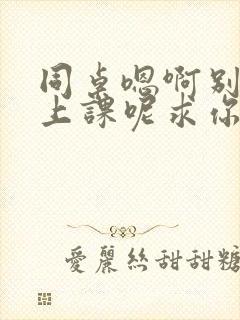 同桌嗯啊别
上課呢求你
愛麗絲甜甜糖